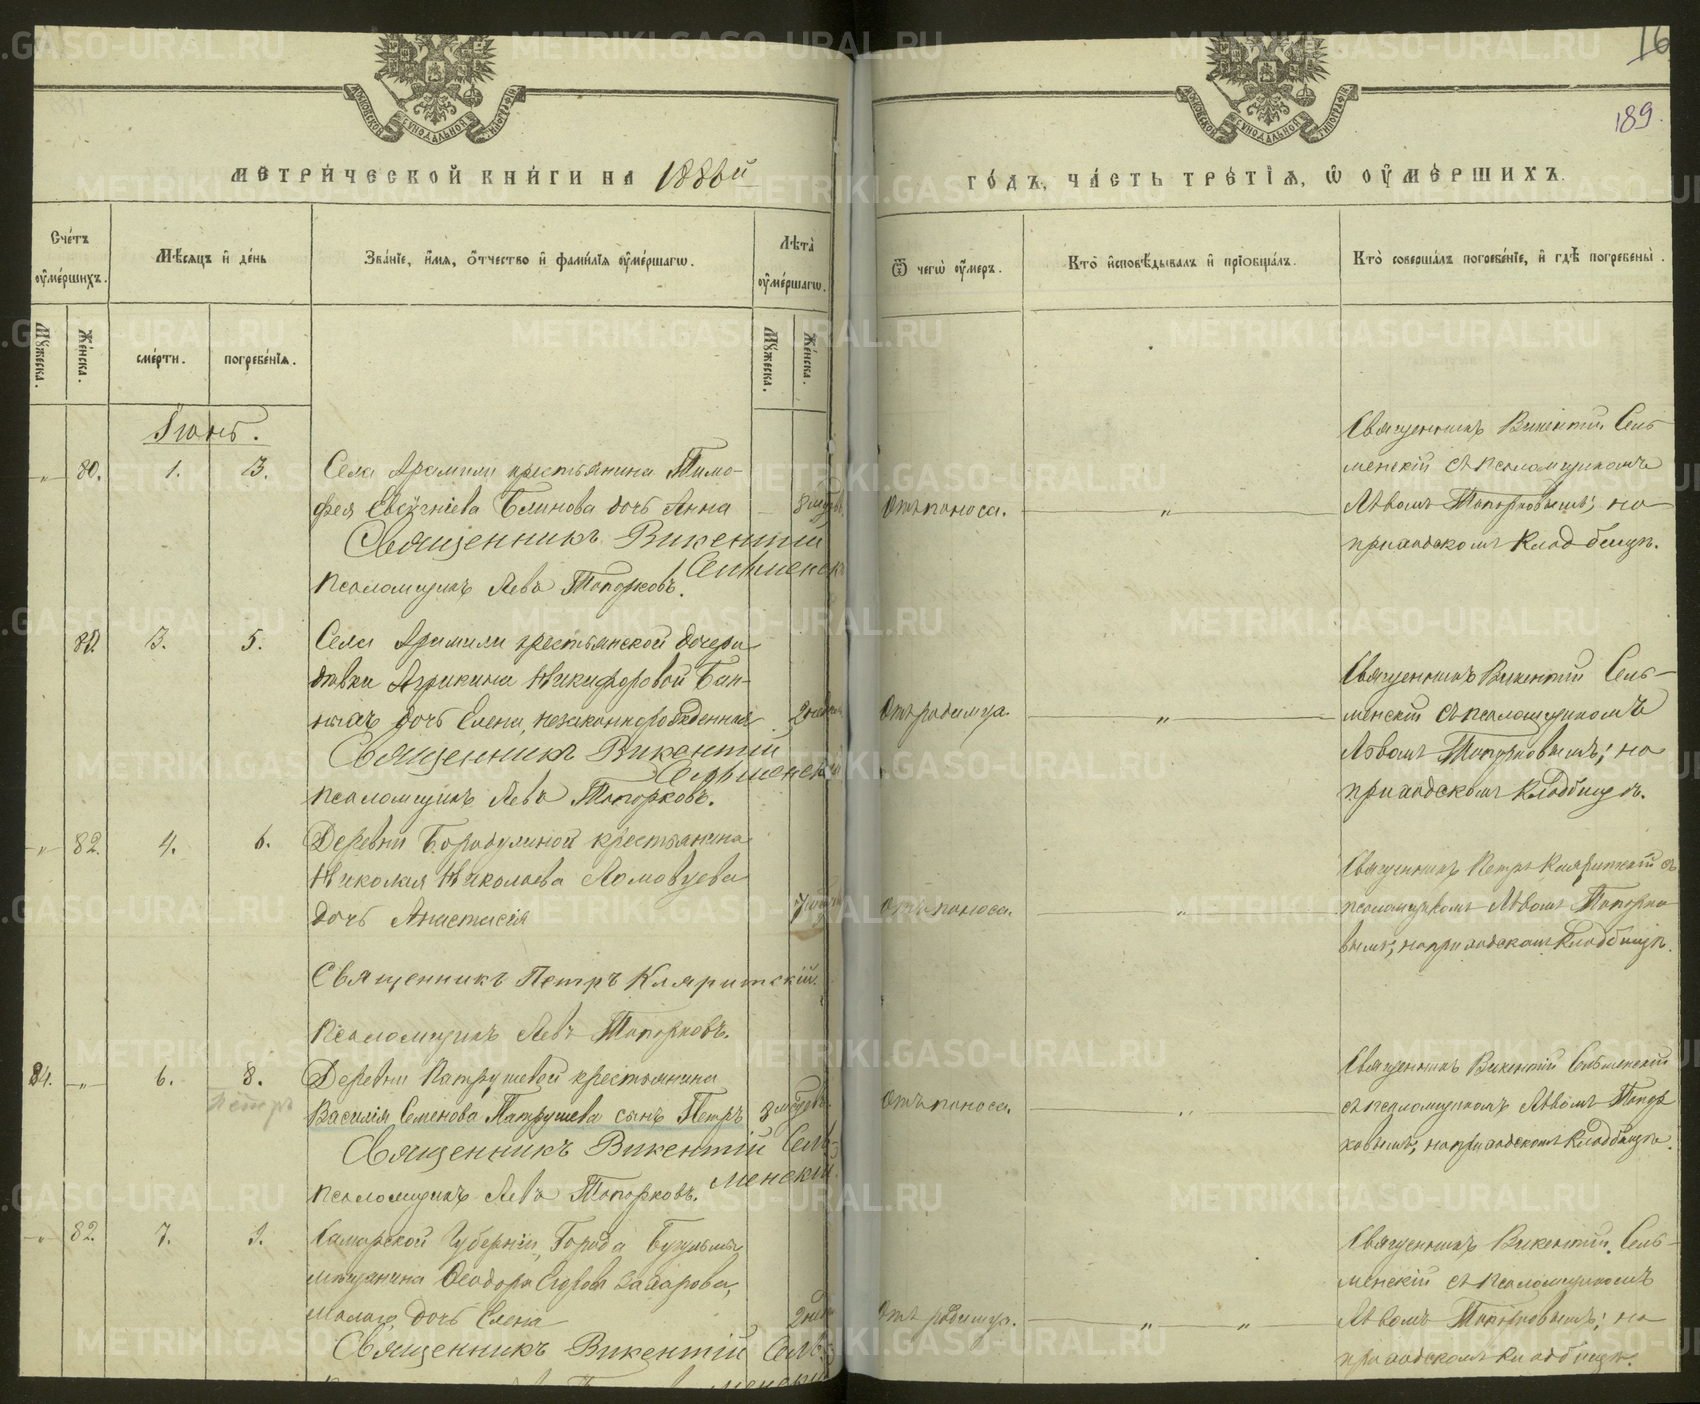 16
189.
МЕТРИЧЕСКОЙ КНИГИ НА 1886й
ГОДЪ, ЧАСТЬ ТРЕТІЯ, Ѿ ОУМЕРШИХЪ.
Счетъ оумершихъ.
Мѣсяцъ и день
Званіе, имя, отчество и фамилія оумершагѡ.
Лѣта оумершагѡ.
Ѿ чегѡ оумеръ.
Кто исповѣдывалъ и пріобщалъ.
Кто совершалъ погребеніе, и гдѣ погребены.
Мужеска.
Женска.
смерти.
погребенія.
Мужеска.
Женска.
Іюнь.
80. 1. 3.
Села Арамили крестьянина Тимо-
фея Евгеніева Блинова дочь Анна
Священникъ Викентій
Сельменскій
Псаломщикъ Левъ Топорковъ.
Отъ поноса.
Священникъ Викентій Сель-
менскій съ псаломщикомъ
Львомъ Топорковымъ; на
приходскомъ кладбищѣ.
3. 5.
Села Арамили крестьянской дочери
дѣвки Никифоровой
дочь Елена, незаконнорожденная
Священникъ Викентій
Сельменскій
Псаломщикъ Левъ Топорковъ.
Отъ родимца.
Священникъ Викентій Сель-
менскій съ псаломщикомъ
Львомъ Топорковымъ; на
приходскомъ кладбищѣ.
82. 4. 6.
Деревни Бородулиной крестьянина
Николая Николаева
дочь Анастасія
Священникъ Петръ
Псаломщикъ Левъ Топорковъ.
Отъ поноса.
Священникъ Петръ съ
псаломщикомъ Львомъ Топорко-
вымъ; на приходскомъ кладбищѣ.
84. 6. 8.
Петръ
Деревни Патрушевой крестьянина
Василія Семенова Патрушева сынъ Петръ
Священникъ Викентій Сель-
менскій
Псаломщикъ Левъ Топорковъ.
Отъ поноса.
Священникъ Викентій Сельменскій
съ псаломщикомъ Львомъ Топор-
ковымъ; на приходскомъ кладбищѣ.
82. 7.
Самарской Губерніи, Города Бугульмы
мѣщанина Ѳеодора
дочь Елена
Священникъ Викентій Сель-
менскій
Отъ родимца.
Священникъ Викентій Сель-
менскій съ псаломщикомъ
Львомъ Топорковымъ; на
приходскомъ кладбищѣ.
METRIKI.GASO-URAL.RU